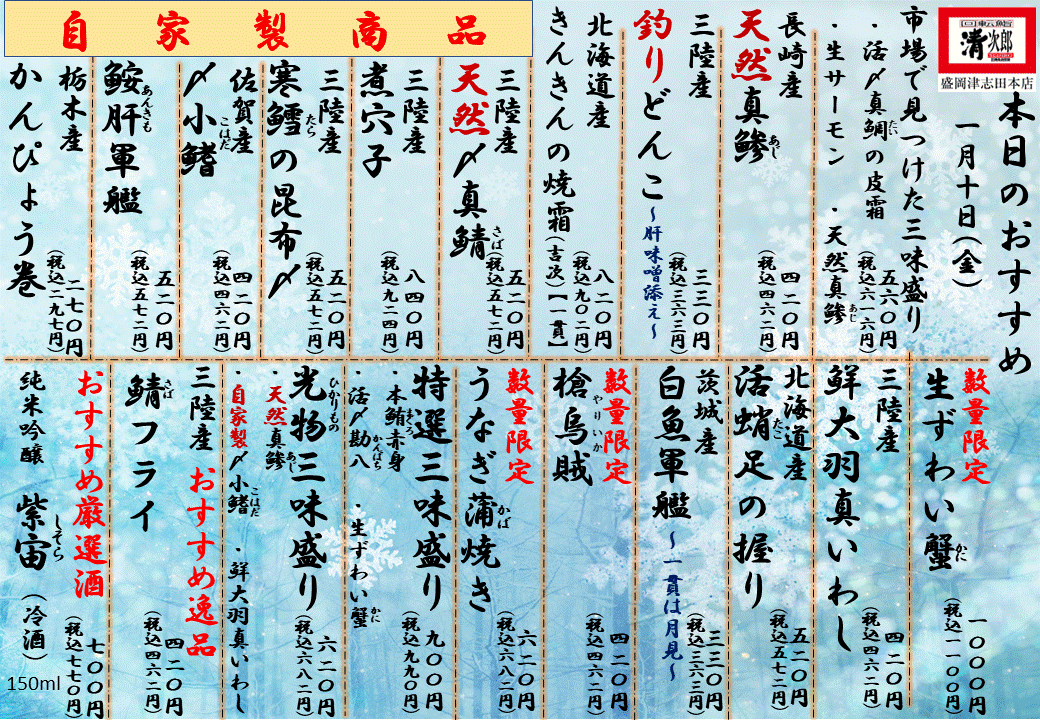 回転鮨
清次郎
盛岡津志田本店
本日のおすすめ
一月十日(金)
市場で見つけた三味盛り
・活〆真鯛の皮霜
たい
・生サーモン ・天然真鯵
あじ
五六〇円
(税込六一六円)
長崎産
天然真鯵
あじ
四二〇円
(税込四六二円)
三陸産
釣りどんこ
~肝味噌添え~
三三〇円
(税込三六三円)
北海道産
きんきんの焼霜(吉次)【一貫】
八二〇円
(税込九〇二円)
自家製商品
三陸産
天然〆真鯖
さば
五二〇円
(税込五七二円)
三陸産
煮穴子
八四〇円
(税込九二四円)
三陸産
寒鱈の昆布〆
たら
五二〇円
(税込五七二円)
佐賀産
〆小鰭
こはだ
四二〇円
(税込四六二円)
鮟肝軍艦
あんきも
五二〇円
(税込五七二円)
栃木産
かんぴょう巻
二七〇円
(税込二九七円)
数量限定
生ずわい蟹
かに
一〇〇〇円
(税込一一〇〇円)
三陸産
鮮大羽真いわし
四二〇円
(税込四六二円)
北海道産
活蛸足の握り
たこ
五二〇円
(税込五七二円)
茨城産
白魚軍艦
~一貫は月見~
三三〇円
(税込三六三円)
数量限定
槍烏賊
やりいか
四二〇円
(税込四六二円)
数量限定
うなぎ蒲焼き
かば
六二〇円
(税込六八二円)
特選三味盛り
・本鮪赤身
まぐろ
・活〆勘八 ・生ずわい蟹
かんぱち
かに
九〇〇円
(税込九九〇円)
光物三味盛り
ひかりもの
・天然真鯵
あじ
・自家製〆小鰭 ・鮮大羽真いわし
こはだ
六二〇円
(税込六八二円)
おすすめ逸品
三陸産
鯖フライ
さば
四二〇円
(税込四六二円)
おすすめ厳選酒
純米吟醸 紫宙(冷酒)
しそら
150ml
七〇〇円
(税込七七〇円)